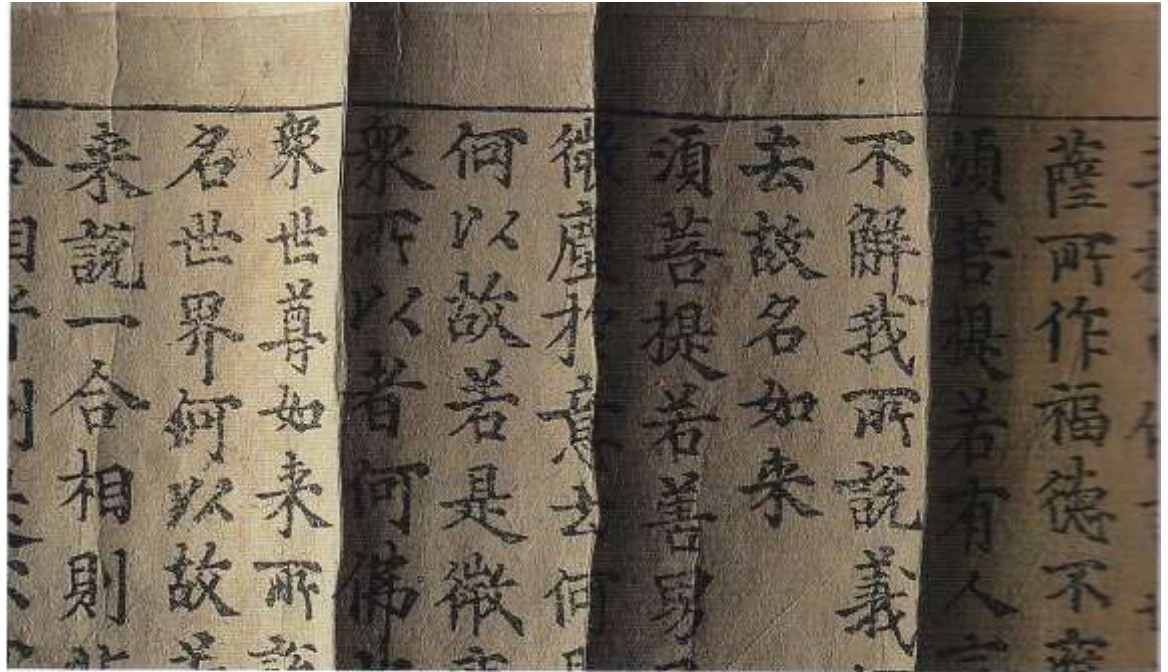 薩所作福德不
須菩提若有人言
不解我所說義
去故名如来
須菩提若善男
微塵於意云何
何以故若是微
衆所以者何佛
衆世尊如来所說
名世界何以故若
来說一合相則